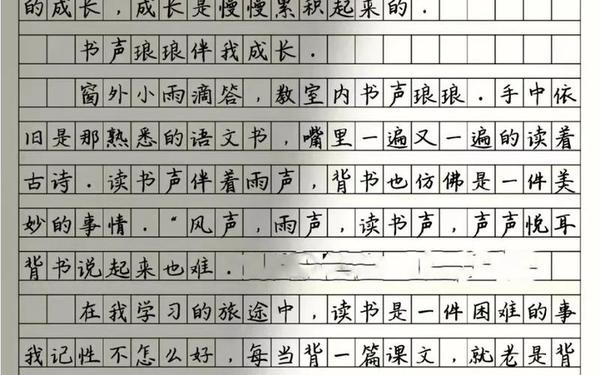 的成长，成长是慢慢累积起来的.
书声琅琅伴我成长.
窗外小雨滴答，教室内书声琅琅.手中依
旧是那熟悉的语文书，嘴里一遍又一遍的读着
古诗.读书声伴着雨声，背书也仿佛是一件美
妙的事情."风声，雨声，读书声，声声悦耳
背书说起来也难.
在我学习的旅途中，读书是一件困难的事
我记性不怎么好，每当背一篇课文，就老是背